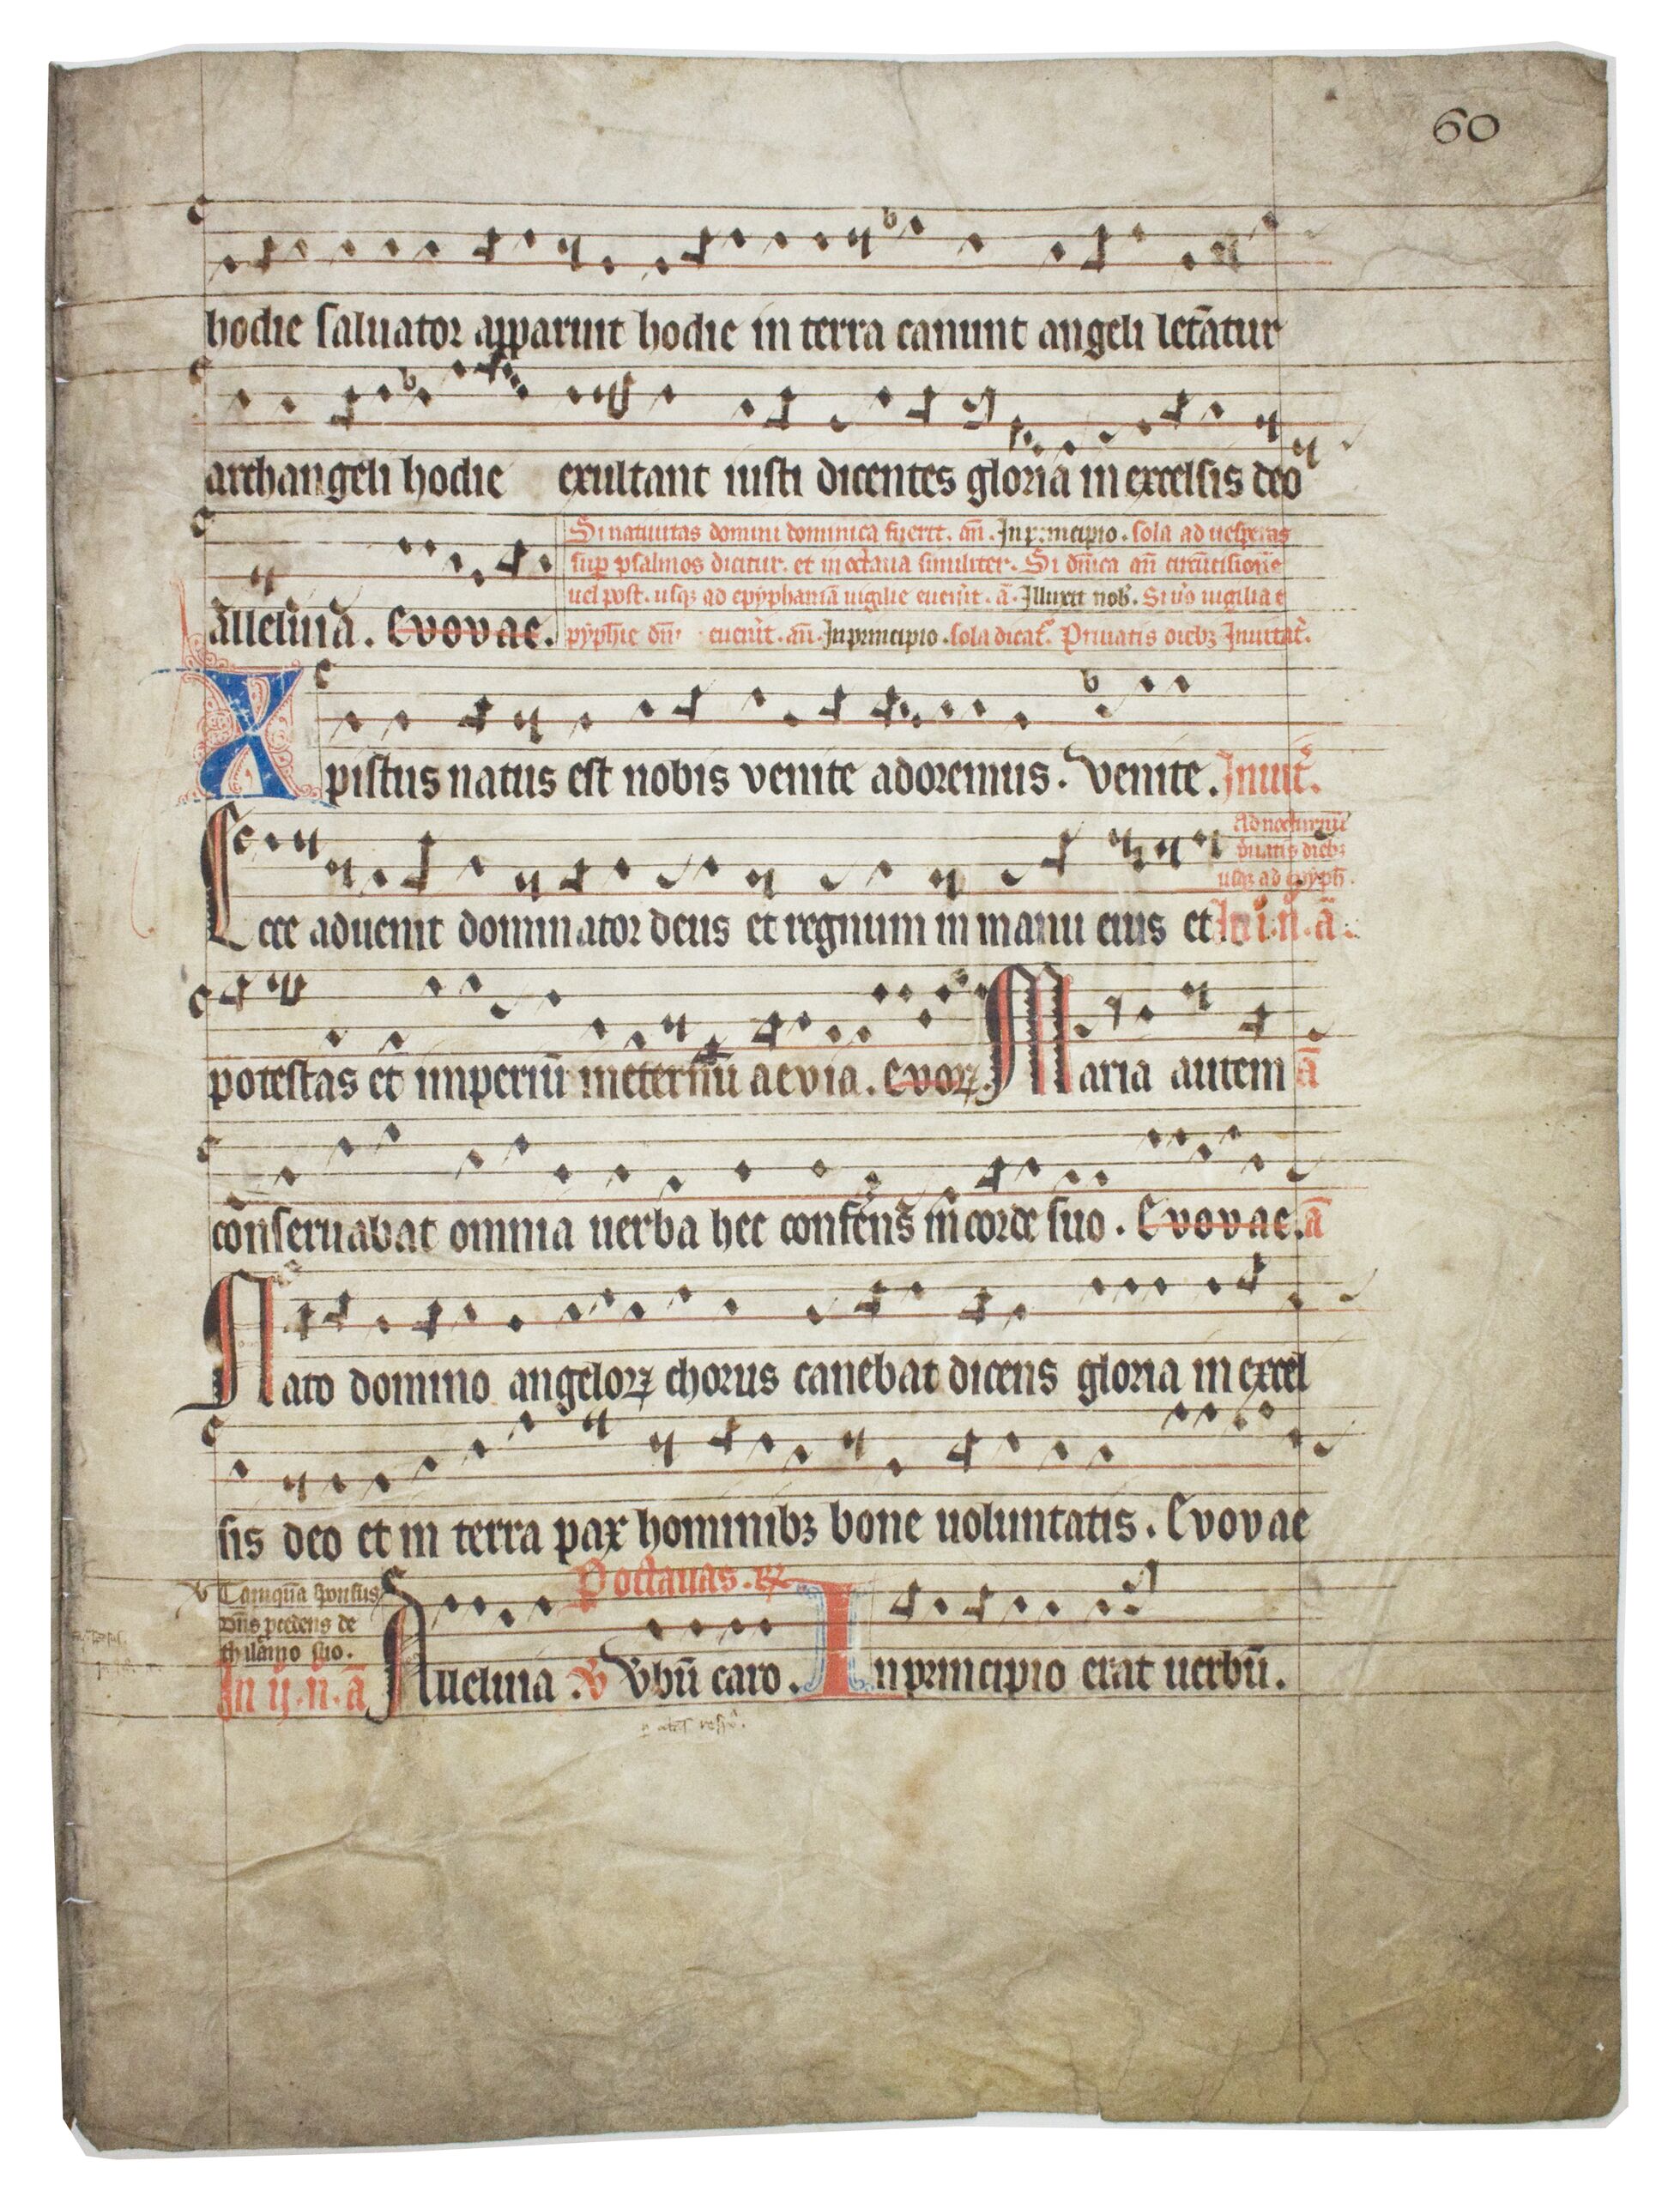 60
hodie saluator apparuit hodie in terra canunt angeli letātur
archangeli hodie exultant iusti dicentes gloria in excelsis deo
Si natiuitas domini dominica fuerit. an̄. In principio. sola ad uesperas
sup psalmos dicitur. et in octaua similiter. Si dn̄ica an̄ circūcisionē
uel post. usqꝫ ad epyphaniā uigilie euen̄it. ā. Illuxit nob̄. Si ūo uigilia e
alleluia. Euouae. pyph̄ie dn̄i euen̄it. an̄. In principio. sola dicat᷑. Priuatis diebꝫ Inuitat᷑.
Xpistus natus est nobis venite adoremus. Venite. Inuit᷑.
Ad nocturnū
usqꝫ ad epyph̄.
Ecce aduenit dominator deus et regnum in manu eius et In i. n. ā.
potestas et imperiū in eternū aevia. Euoꝝ. Maria autem ā
conseruabat omnia uerba hec conferens in corde suo. Euouae. ā
Nato domino angeloꝝ chorus canebat dicens gloria in excel
sis deo et in terra pax hominibꝫ bone uoluntatis. Euouae
P octauas. ℟
Tamquā sponsus
dn̄s p̄cedens de
thalamo suo.
In ij. n. ā Alleluia. ℣ Vbū caro. In principio erat uerbū.